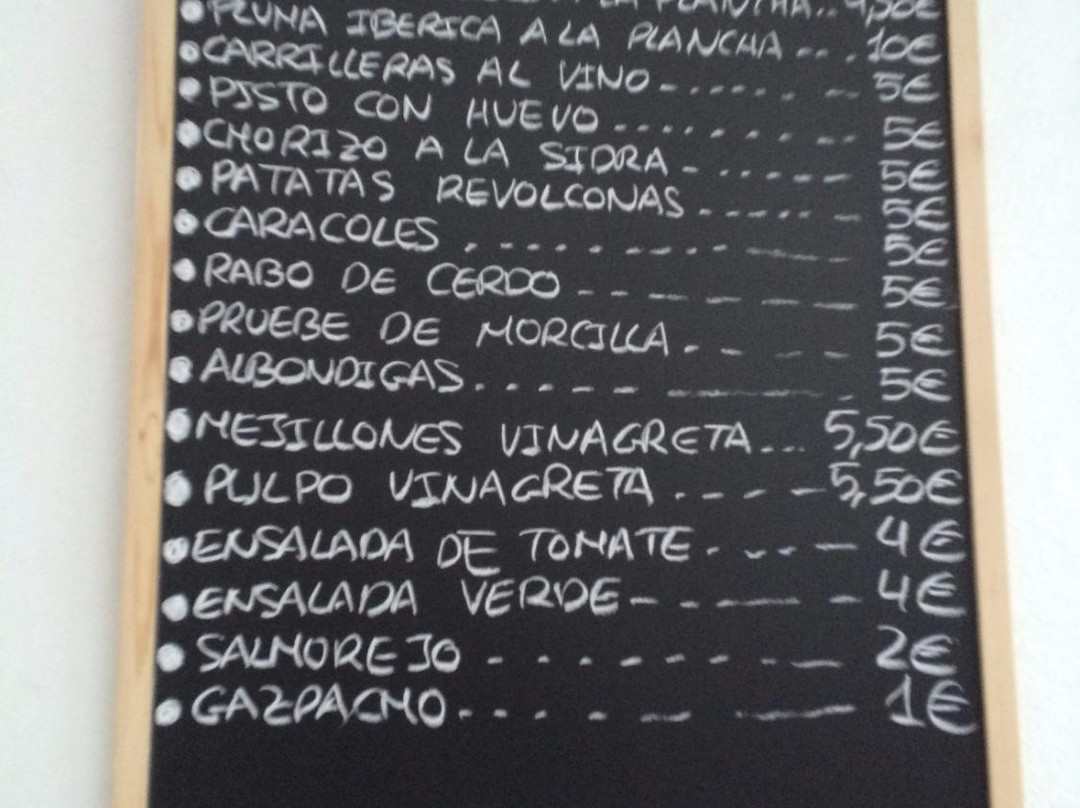 A LA PLANCHA.. 4,50€
• PLUMA IBERICA A LA PLANCHA -- . 10€
• CARRILLERAS AL VINO - - - - - - - 5€
• PISTO CON HUEVO . . . . - - - - - 5€
• CHORIZO A LA SIDRA - - - - - - - 5€
• PATATAS REVOLCONAS - - - - - - 5€
• CARACOLES . - - - - - - - - - 5€
• RABO DE CERDO - - - - - - - 5€
• PRUEBE DE MORCILLA - - - - 5€
• ALBONDIGAS. - - - - - - - 5€
• MEJILLONES VINAGRETA... 5,50€
• PULPO VINAGRETA . - - - 5,50€
• ENSALADA DE TOMATE - - - - 4€
• ENSALADA VERDE - - - - - 4€
• SALMOREJO - - - - - - - - 2€
• GAZPACHO - - - - - - - 1€